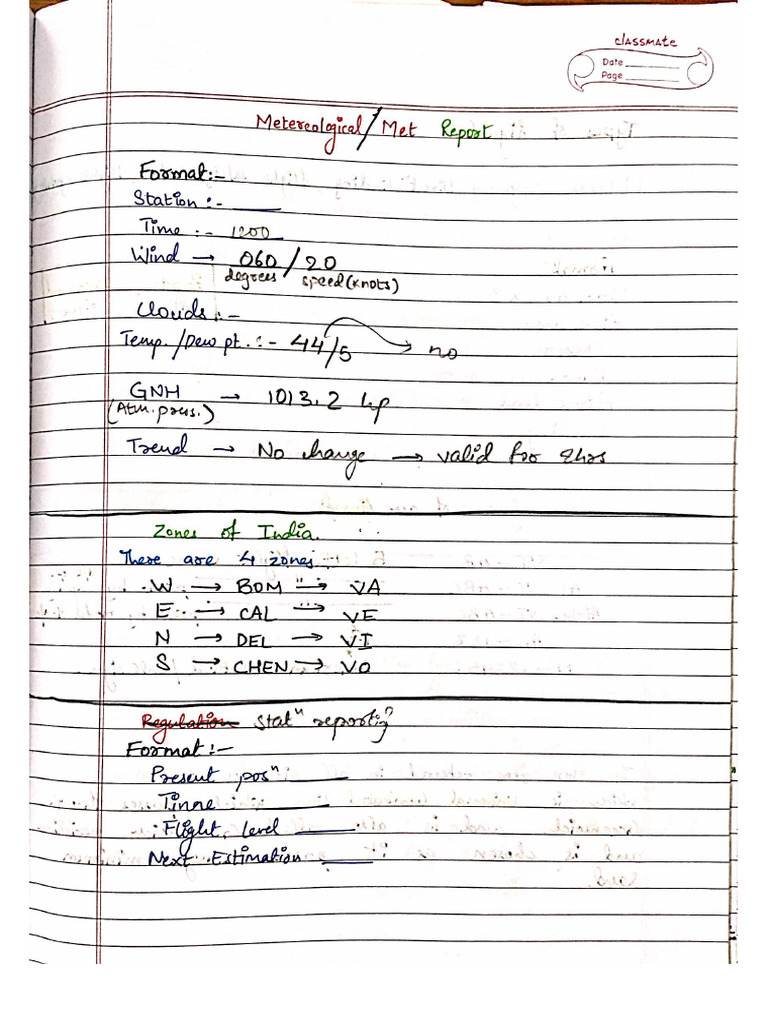 classmate
Date
Page
Metereological/Met Report
Format:-
Station :- 
Time :- 1200
Wind → 060 / 20
degrees speed (knots)
Clouds :-
Temp./Dew pt. :- 44/5 → no
GNH → 1013.2 hp
(Atm. pres.)
Trend → No change → valid for 2hrs
Zones of India.
There are 4 zones
W → BOM → VA
E → CAL → VE
N → DEL → VI
S → CHEN. → VO
Regulation statⁿ reporting
Format :-
Present posⁿ
Time
Flight level
Next Estimation